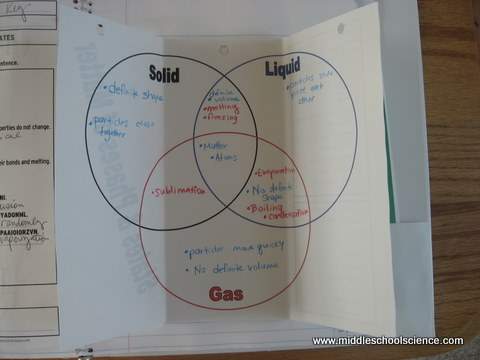 Key
ATES
ntence.
Solid
Liquid
• definite shape
• particles close
together
definite
volume
• melting
• freezing
• particles slide
past each
other
• Matter
• Atoms
perties do not change.
cal
eir bonds and melting.
• sublimation
• Evaporation
• No definite
shape
• Boiling
• condensation
NI.
YADONNL.
randomly
PAAIOIORZVN.
vaporization
• particles move quickly
• No definite volume
Gas
www.middleschoolscience.com